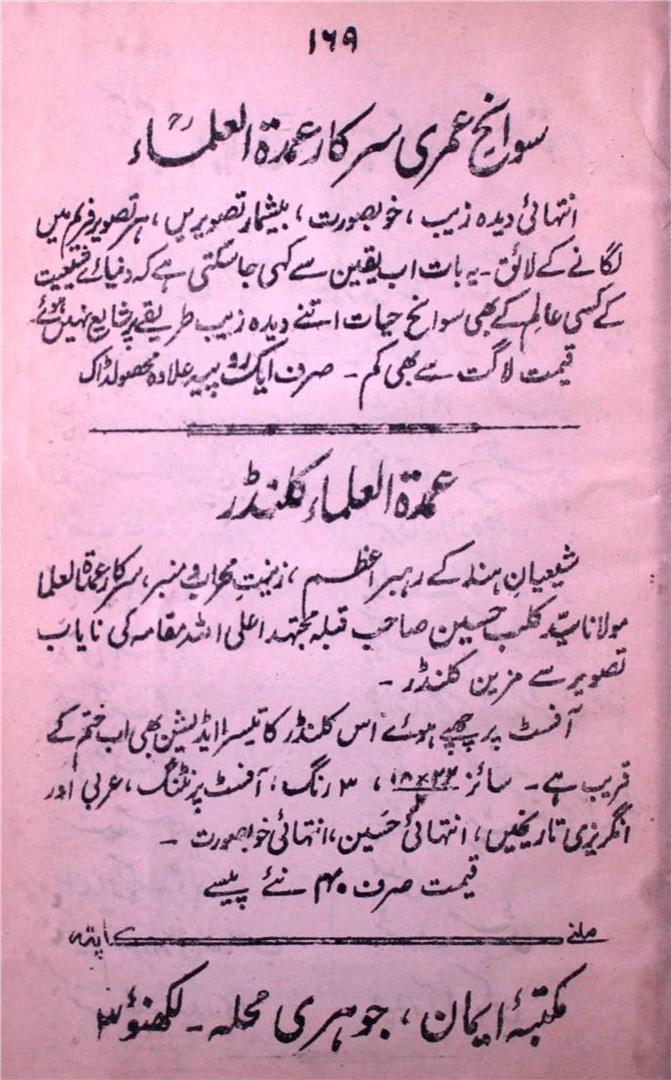 ۱۶۹
سوانح عمری سرکار عمدۃ العلماءؒ
انتہائی دیدہ زیب، خوبصورت، بیشمار تصویریں، ہر تصویر فریم میں
لگانے کے لائق۔ یہ بات اب یقین سے کہی جا سکتی ہے کہ دنیائے شیعیت
کے کسی عالم کے بھی سوانح حیات اتنے دیدہ زیب طریقے پر شایع نہیں ہوئے۔
قیمت لاگت سے بھی کم۔ صرف ایک روپیہ علاوہ محصولڈاک
عمدۃ العلماء کلنڈر
شیعیان ہند کے رہبر اعظم، زینتِ محراب و منبر، سرکار عمدۃ العلما
مولانا سید کلب حسین صاحب قبلہ مجتہد اعلی اللہ مقامہ کی نایاب
تصویر سے مزین کلنڈر۔
آفسٹ پر چھپے ہوئے اس کلنڈر کا تیسرا ایڈیشن بھی اب ختم کے
قریب ہے۔ سائز ۲۳×۱۸، ۳ رنگ، آفسٹ پرنٹنگ، عربی اور
انگریزی تاریخیں، انتہائی حسین، انتہائی خوبصورت۔
قیمت صرف ۴۰ نئے پیسے
ملنے کا پتہ
مکتبۂ ایمان، جوہری محلہ۔ لکھنؤ ۳